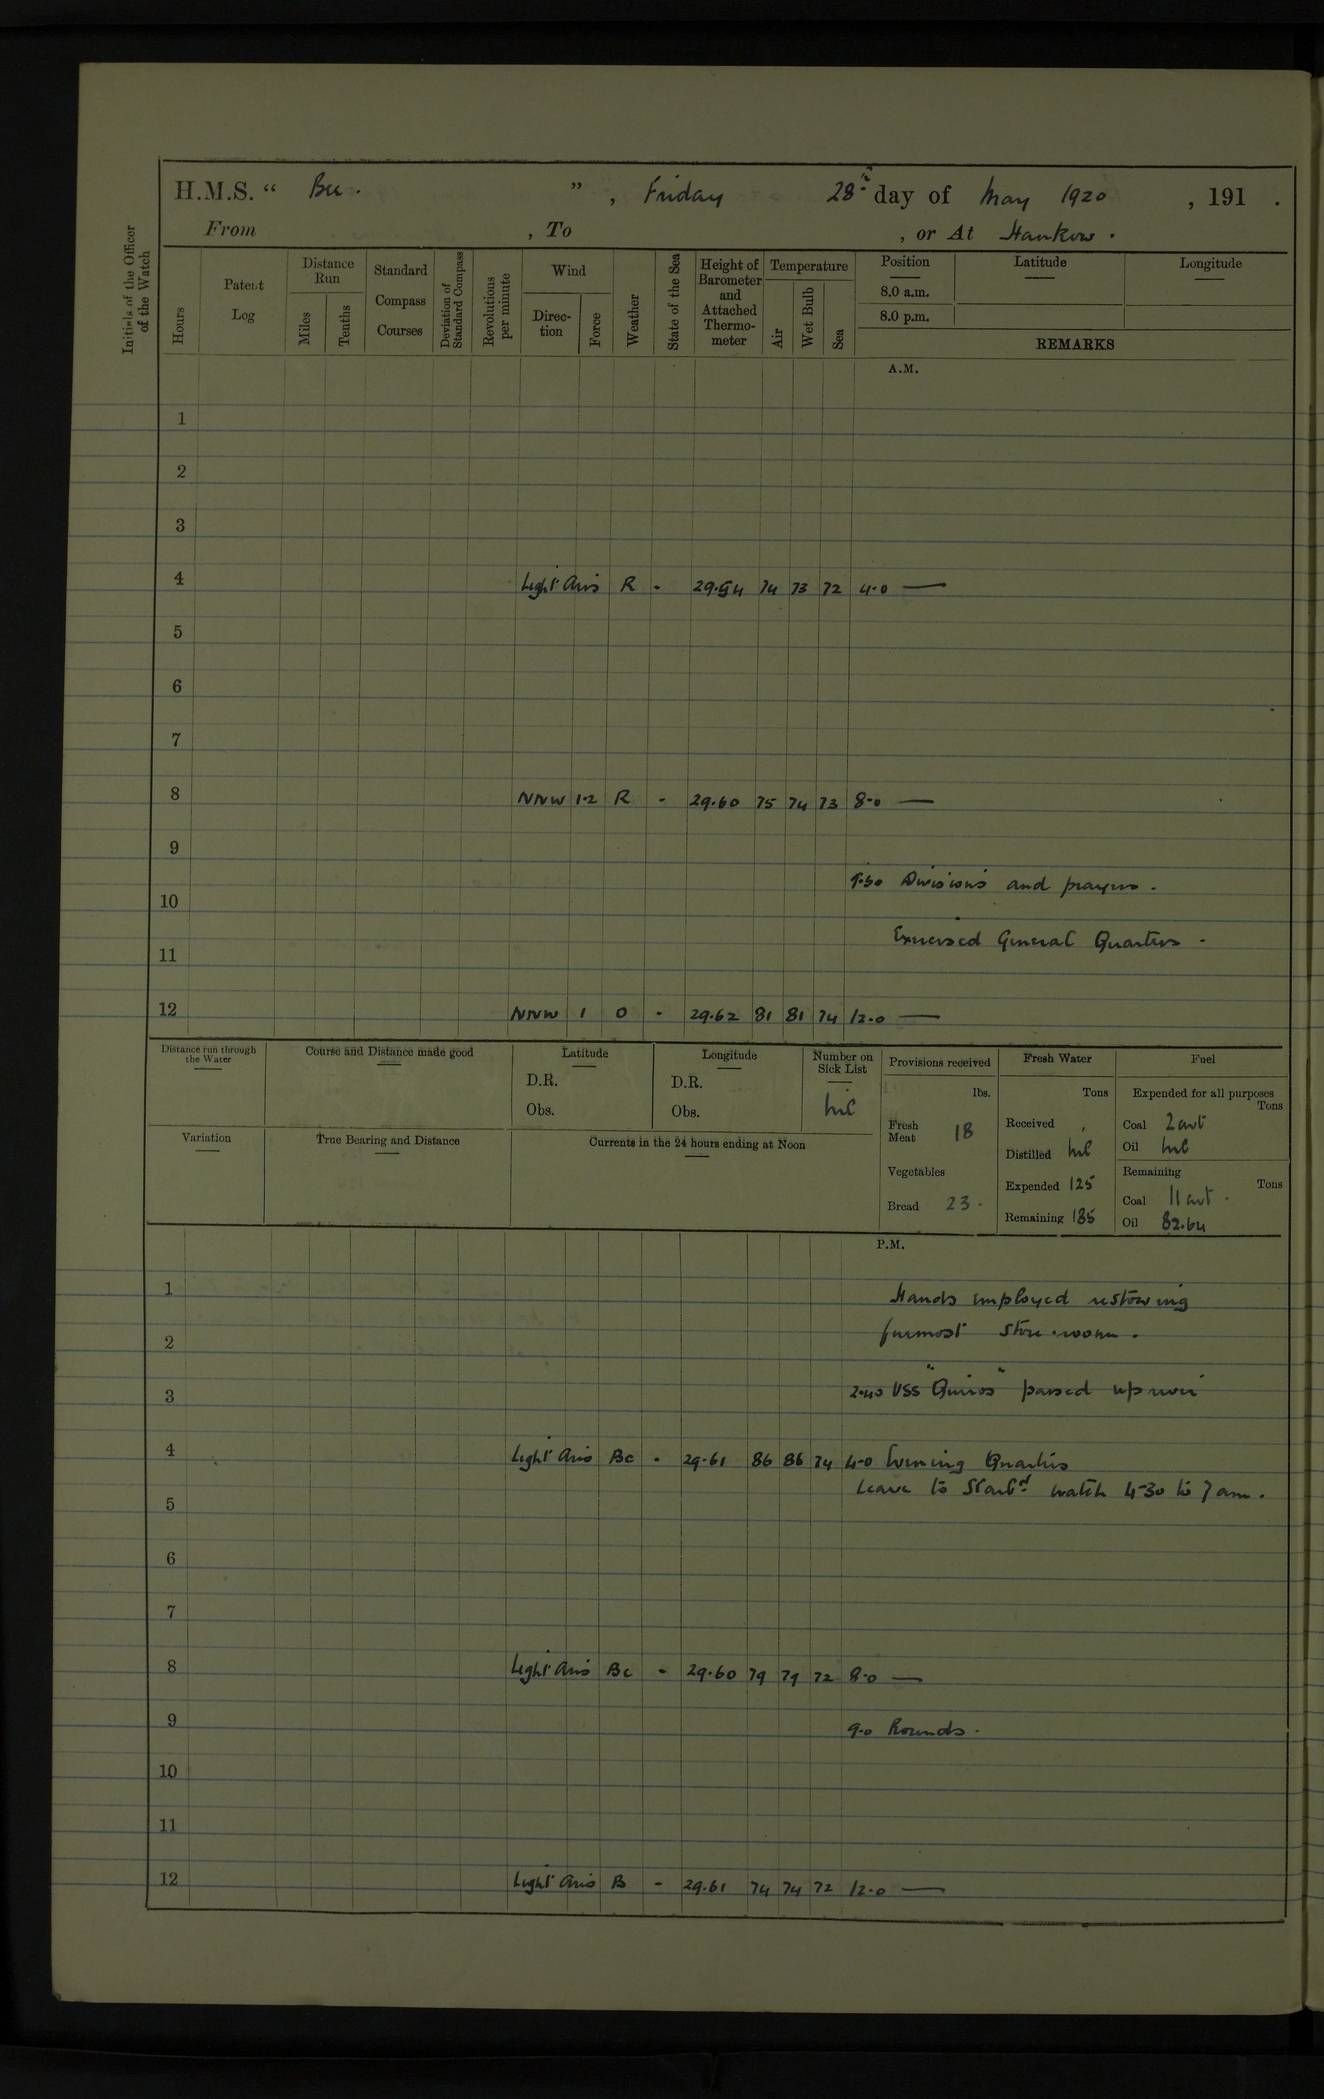 H.M.S. “ Bee. ” , Friday 28th day of May 1920 , 191 .
From , To , or At Hankow .
Initials of the Officer of the Watch
Hours
Patent Log
Distance Run
Miles
Tenths
Standard Compass Courses
Deviation of Standard Compass
Revolutions per minute
Wind
Direction
Force
Weather
State of the Sea
Height of Barometer and Attached Thermometer
Temperature
Air
Wet Bulb
Sea
Position
8.0 a.m.
8.0 p.m.
Latitude
Longitude
REMARKS
A.M.
1
2
3
4 Light Airs R - 29.54 74 73 72 4.0 —
5
6
7
8 NNW 1.2 R - 29.60 75 74 73 8.0 —
9
9.30 Divisions and prayers .
10
Exercised General Quarters .
11
12 NNW 1 O - 29.62 81 81 74 12.0 —
Distance run through the Water
Course and Distance made good
Latitude
D.R.
Obs.
Longitude
D.R.
Obs.
Number on Sick List
nil
Variation
True Bearing and Distance
Currents in the 24 hours ending at Noon
Provisions received
lbs.
Fresh Meat 18
Vegetables
Bread 23 .
Fresh Water
Tons
Received
Distilled nil
Expended 125
Remaining 185
Fuel
Expended for all purposes
Tons
Coal 2 cwt
Oil nil
Remaining
Tons
Coal 11 cwt .
Oil 82.64
P.M.
1 Hands employed restowing
2 foremost store room .
3 2.40 USS "Quiros" passed up river
4 Light Airs Bc - 29.61 86 86 74 4.0 Evening Quarters
Leave to Starbd watch 4.30 to 7 am .
5
6
7
8 Light Airs Bc - 29.60 79 79 72 8.0 —
9 9.0 Rounds .
10
11
12 Light Airs B - 29.61 74 74 72 12.0 —